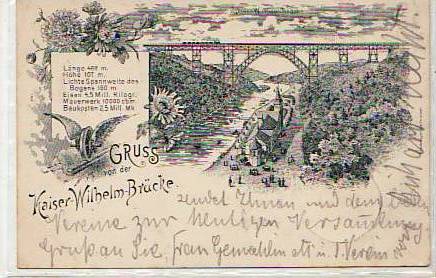 Länge 469 m.
Höhe 107 m.
Lichte Spannweite des
Bogens 160 m
Eisen 4,5 Mill. Kilogr.
Mauerwerk 10000 cbm.
Baukosten 2,5 Mill. Mk
GRUSS
von der
Kaiser-Wilhelm-Brücke.
sendet Ihnen und dem
Vereine zur heutigen Versammlung
Gruß an Sie, Frau Gemahlin